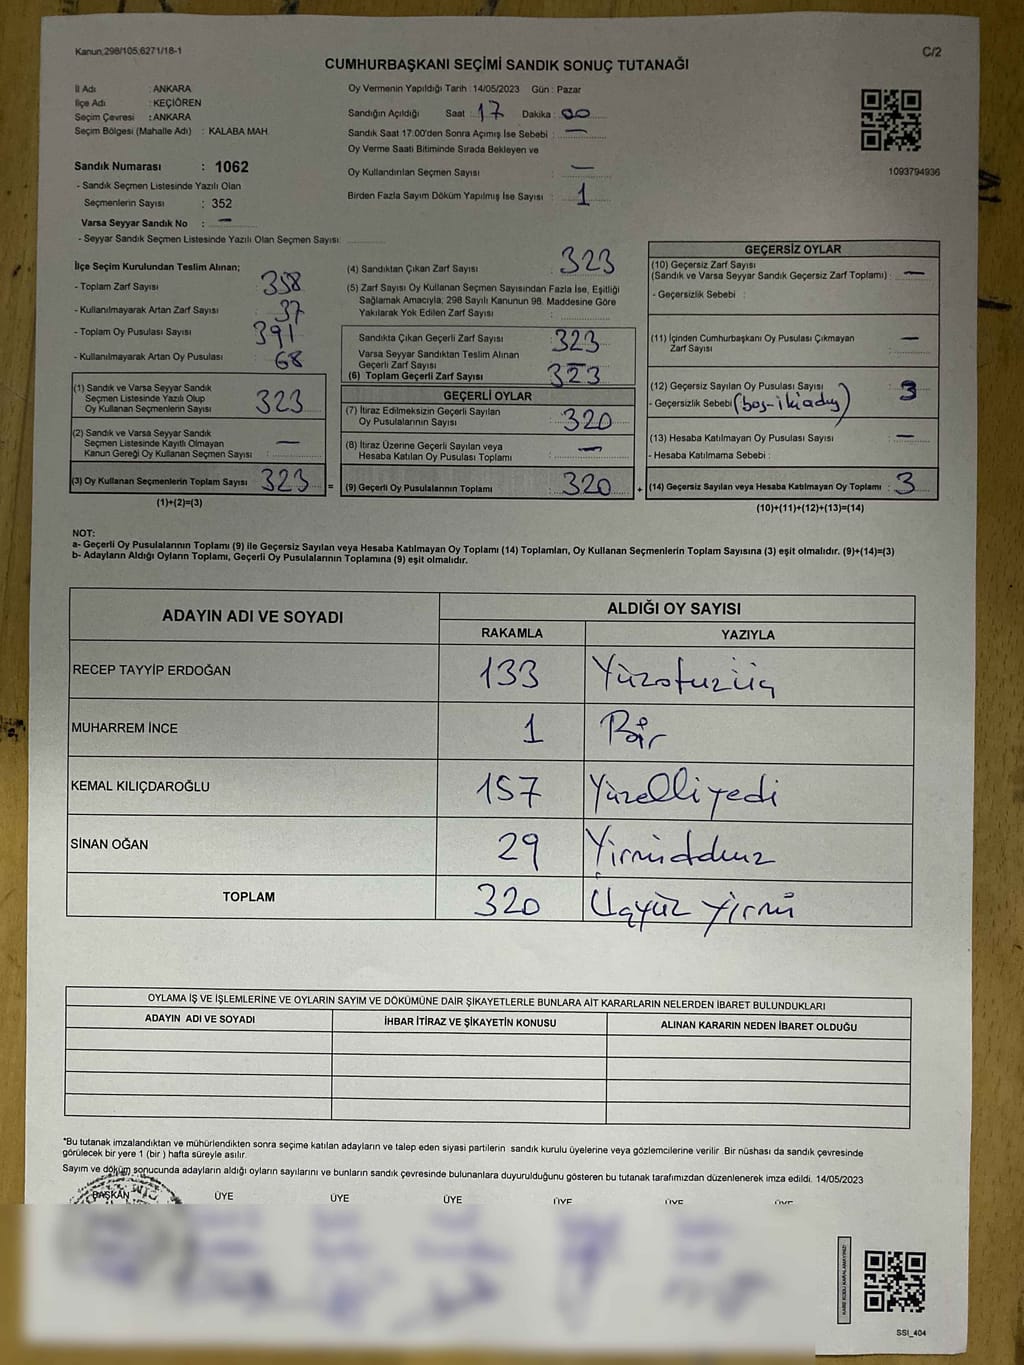 Kanun;298/105;6271/18-1
C/2
CUMHURBAŞKANI SEÇİMİ SANDIK SONUÇ TUTANAĞI
İl Adı : ANKARA
İlçe Adı : KEÇİÖREN
Seçim Çevresi : ANKARA
Seçim Bölgesi (Mahalle Adı) : KALABA MAH
Sandık Numarası : 1062
- Sandık Seçmen Listesinde Yazılı Olan
Seçmenlerin Sayısı : 352
Varsa Seyyar Sandık No : —
- Seyyar Sandık Seçmen Listesinde Yazılı Olan Seçmen Sayısı:
Oy Vermenin Yapıldığı Tarih : 14/05/2023 Gün : Pazar
Sandığın Açıldığı Saat : 17 Dakika : 00
Sandık Saat 17:00'den Sonra Açımış İse Sebebi : —
Oy Verme Saati Bitiminde Sırada Bekleyen ve
Oy Kullandırılan Seçmen Sayısı : —
Birden Fazla Sayım Döküm Yapılmış İse Sayısı : 1
1093794936
İlçe Seçim Kurulundan Teslim Alınan;
- Toplam Zarf Sayısı : 358
- Kullanılmayarak Artan Zarf Sayısı : 37
- Toplam Oy Pusulası Sayısı : 391
- Kullanılmayarak Artan Oy Pusulası : 68
(1) Sandık ve Varsa Seyyar Sandık
Seçmen Listesinde Yazılı Olup
Oy Kullanan Seçmenlerin Sayısı : 323
(2) Sandık ve Varsa Seyyar Sandık
Seçmen Listesinde Kayıtlı Olmayan
Kanun Gereği Oy Kullanan Seçmen Sayısı : —
(3) Oy Kullanan Seçmenlerin Toplam Sayısı : 323
(1)+(2)=(3)
(4) Sandıktan Çıkan Zarf Sayısı : 323
(5) Zarf Sayısı Oy Kullanan Seçmen Sayısından Fazla İse, Eşitliği
Sağlamak Amacıyla, 298 Sayılı Kanunun 98. Maddesine Göre
Yakılarak Yok Edilen Zarf Sayısı :
Sandıkta Çıkan Geçerli Zarf Sayısı : 323
Varsa Seyyar Sandıktan Teslim Alınan
Geçerli Zarf Sayısı :
(6) Toplam Geçerli Zarf Sayısı : 323
GEÇERLİ OYLAR
(7) İtiraz Edilmeksizin Geçerli Sayılan
Oy Pusulalarının Sayısı : 320
(8) İtiraz Üzerine Geçerli Sayılan veya
Hesaba Katılan Oy Pusulası Toplamı : —
= (9) Geçerli Oy Pusulalarının Toplamı : 320
GEÇERSİZ OYLAR
(10) Geçersiz Zarf Sayısı
(Sandık ve Varsa Seyyar Sandık Geçersiz Zarf Toplamı) : —
- Geçersizlik Sebebi :
(11) İçinden Cumhurbaşkanı Oy Pusulası Çıkmayan
Zarf Sayısı : —
(12) Geçersiz Sayılan Oy Pusulası Sayısı : 3
- Geçersizlik Sebebi (boş-iki aday)
(13) Hesaba Katılmayan Oy Pusulası Sayısı : —
- Hesaba Katılmama Sebebi :
+ (14) Geçersiz Sayılan veya Hesaba Katılmayan Oy Toplamı : 3
(10)+(11)+(12)+(13)=(14)
NOT:
a- Geçerli Oy Pusulalarının Toplamı (9) ile Geçersiz Sayılan veya Hesaba Katılmayan Oy Toplamı (14) Toplamları, Oy Kullanan Seçmenlerin Toplam Sayısına (3) eşit olmalıdır. (9)+(14)=(3)
b- Adayların Aldığı Oyların Toplamı, Geçerli Oy Pusulalarının Toplamına (9) eşit olmalıdır.
ADAYIN ADI VE SOYADI
ALDIĞI OY SAYISI
RAKAMLA YAZIYLA
RECEP TAYYİP ERDOĞAN 133 Yüzotuzüç
MUHARREM İNCE 1 Bir
KEMAL KILIÇDAROĞLU 157 Yüzelliyedi
SİNAN OĞAN 29 Yirmidokuz
TOPLAM 320 Üçyüz yirmi
OYLAMA İŞ VE İŞLEMLERİNE VE OYLARIN SAYIM VE DÖKÜMÜNE DAİR ŞİKAYETLERLE BUNLARA AİT KARARLARIN NELERDEN İBARET BULUNDUKLARI
ADAYIN ADI VE SOYADI İHBAR İTİRAZ VE ŞİKAYETİN KONUSU ALINAN KARARIN NEDEN İBARET OLDUĞU
*Bu tutanak imzalandıktan ve mühürlendikten sonra seçime katılan adayların ve talep eden siyasi partilerin sandık kurulu üyelerine veya gözlemcilerine verilir. Bir nüshası da sandık çevresinde
görülecek bir yere 1 (bir ) hafta süreyle asılır.
Sayım ve döküm sonucunda adayların aldığı oyların sayılarını ve bunların sandık çevresinde bulunanlara duyurulduğunu gösteren bu tutanak tarafımızdan düzenlenerek imza edildi. 14/05/2023
BAŞKAN ÜYE ÜYE ÜYE ÜYE ÜYE ÜYE
KARE KODU KARALAMAYINIZ!
SSI_404